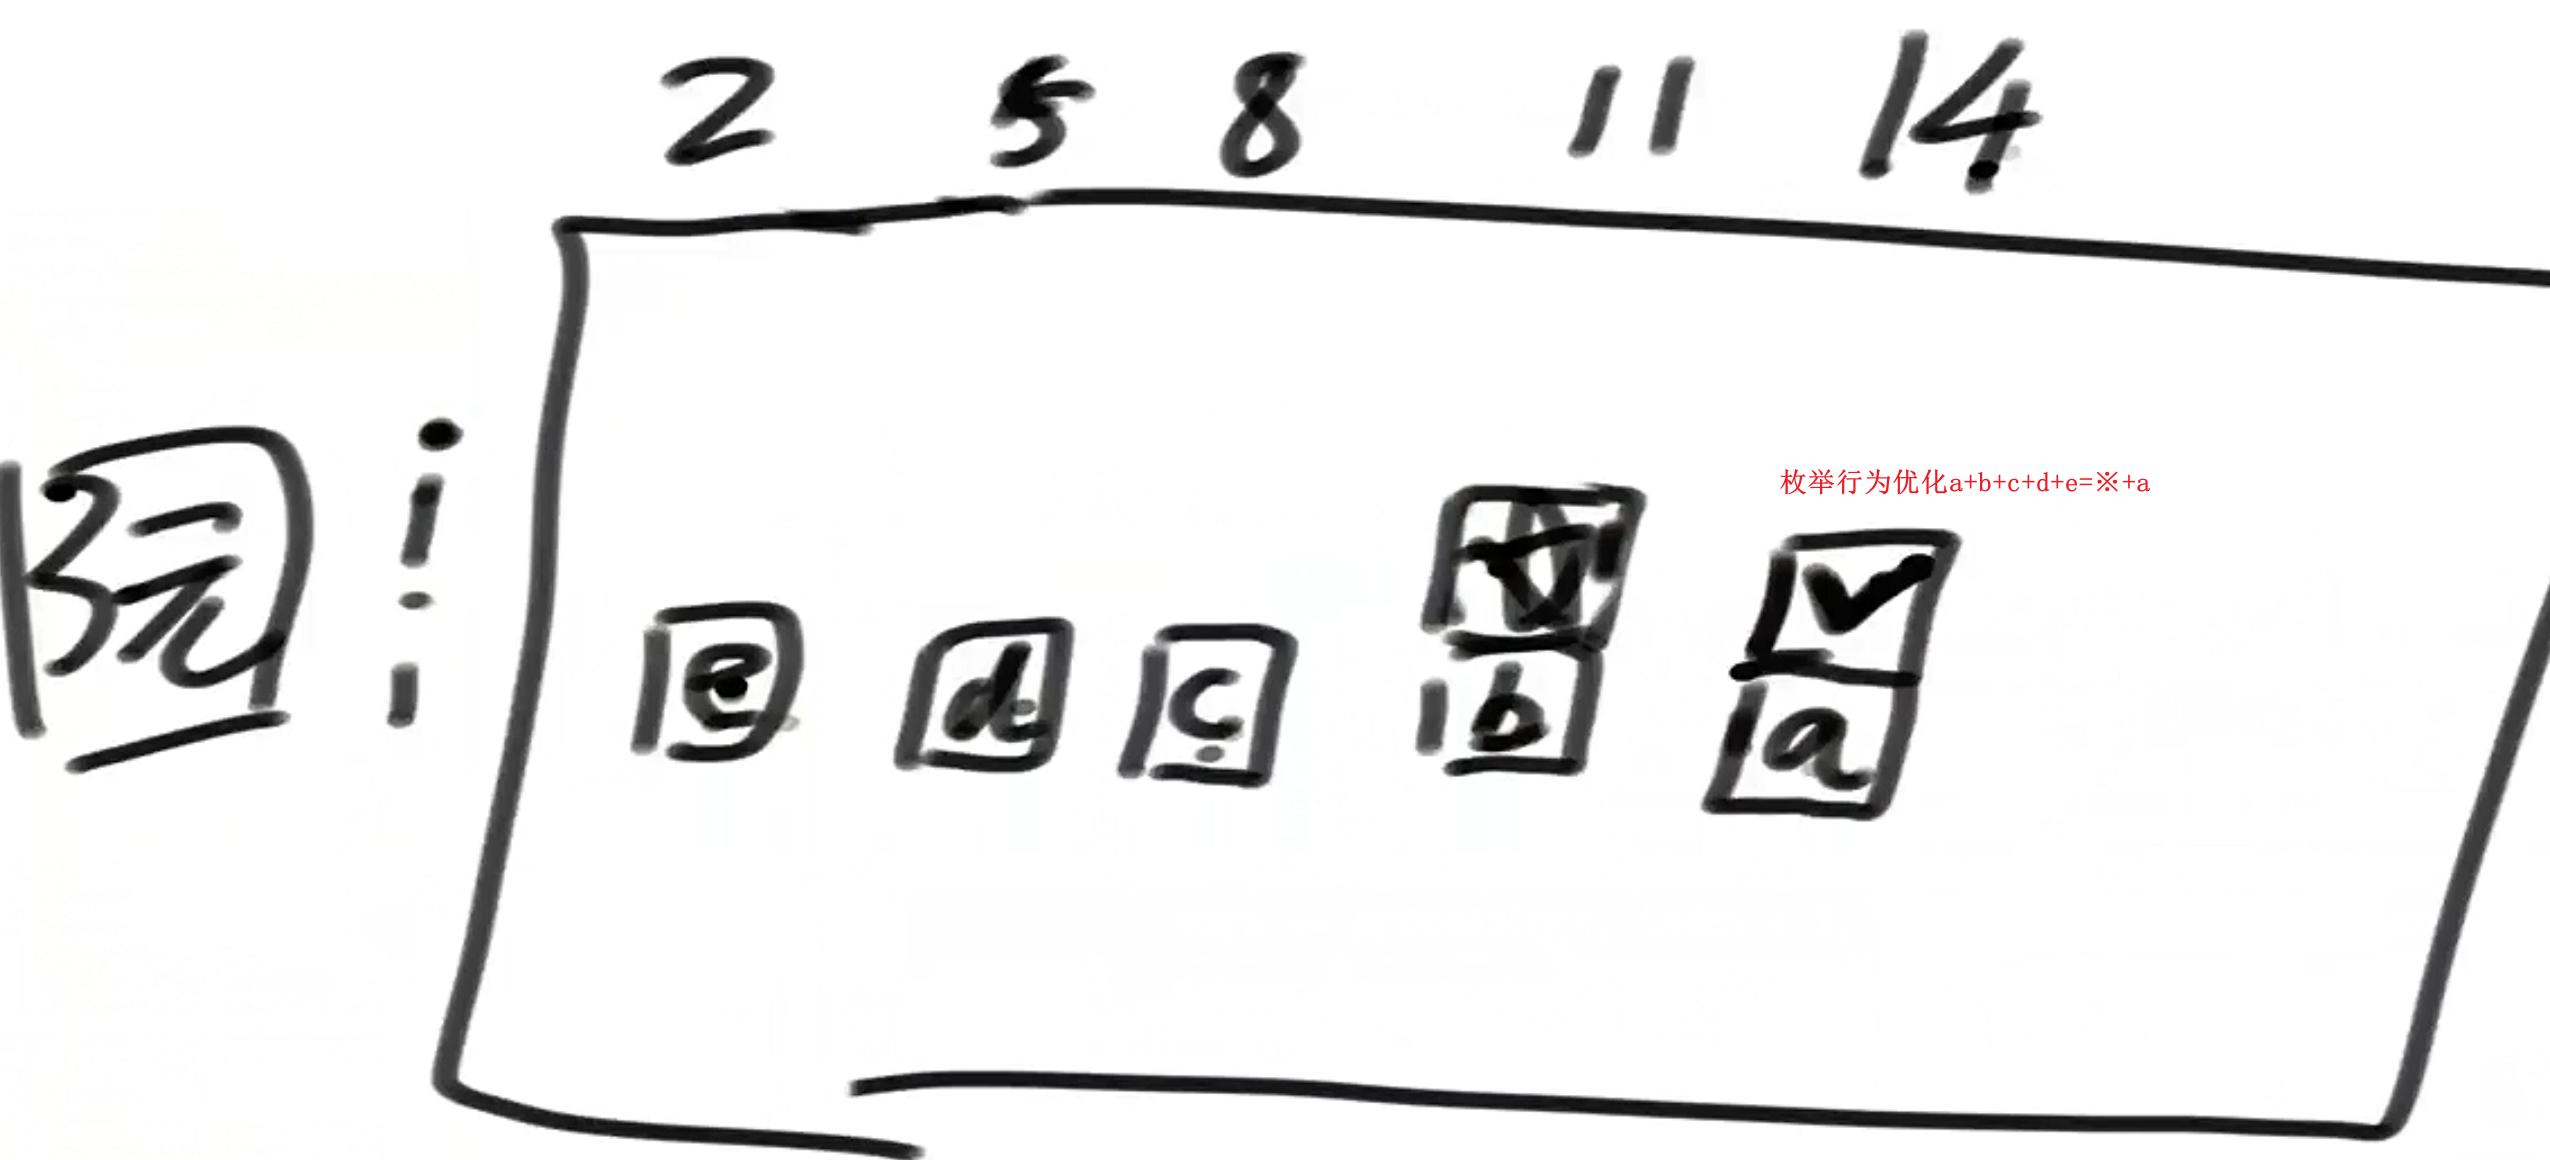 2 5 8 11 14
枚举行为优化a+b+c+d+e=※+a
阮 i
e d c b a